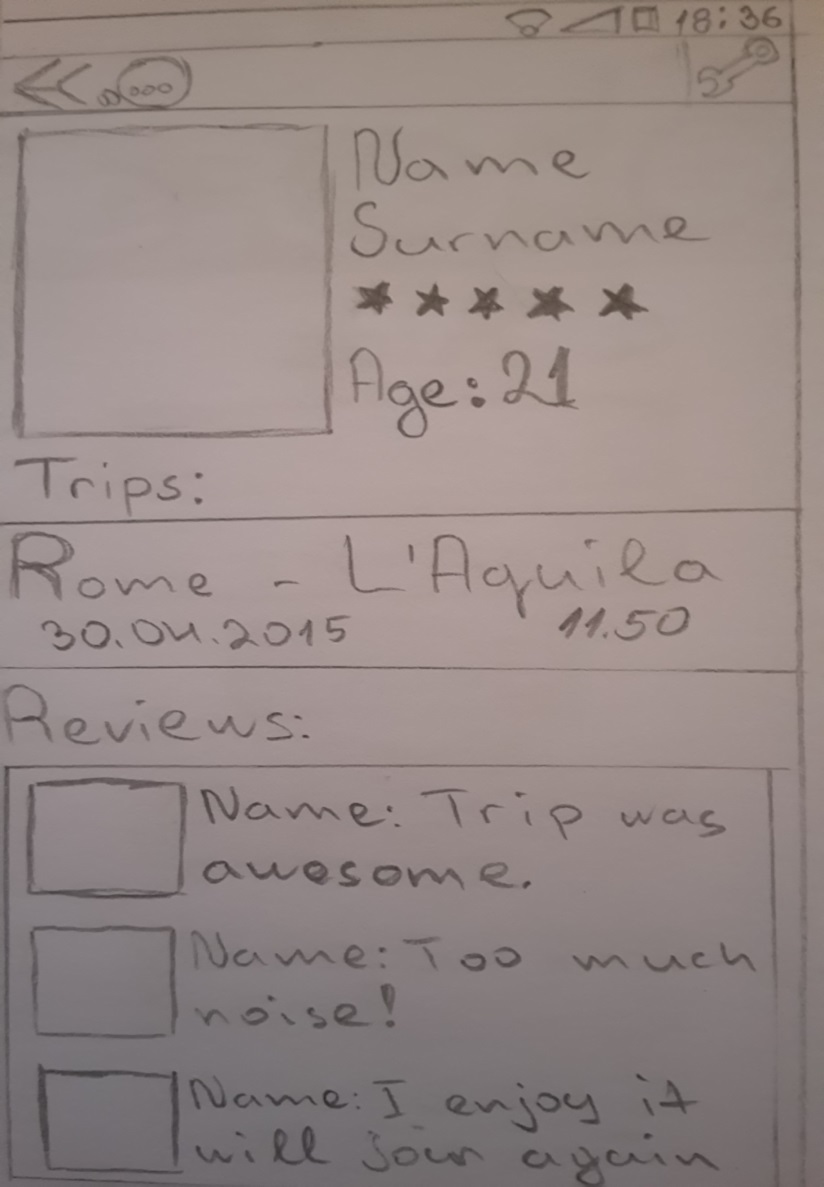 18:36
Name
Surname
Age: 21
Trips:
Rome - L'Aquila
30.04.2015 11.50
Reviews:
Name: Trip was
awesome.
Name: Too much
noise!
Name: I enjoy it
will join again